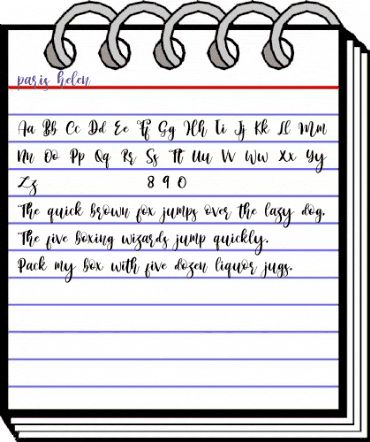 paris helen
Aa Bb Cc Dd Ee Ff Gg Hh Ii Jj Kk Ll Mm
Nn Oo Pp Qq Rr Ss Tt Uu Vv Ww Xx Yy
Zz 8 9 0
The quick brown fox jumps over the lazy dog.
The five boxing wizards jump quickly.
Pack my box with five dozen liquor jugs.